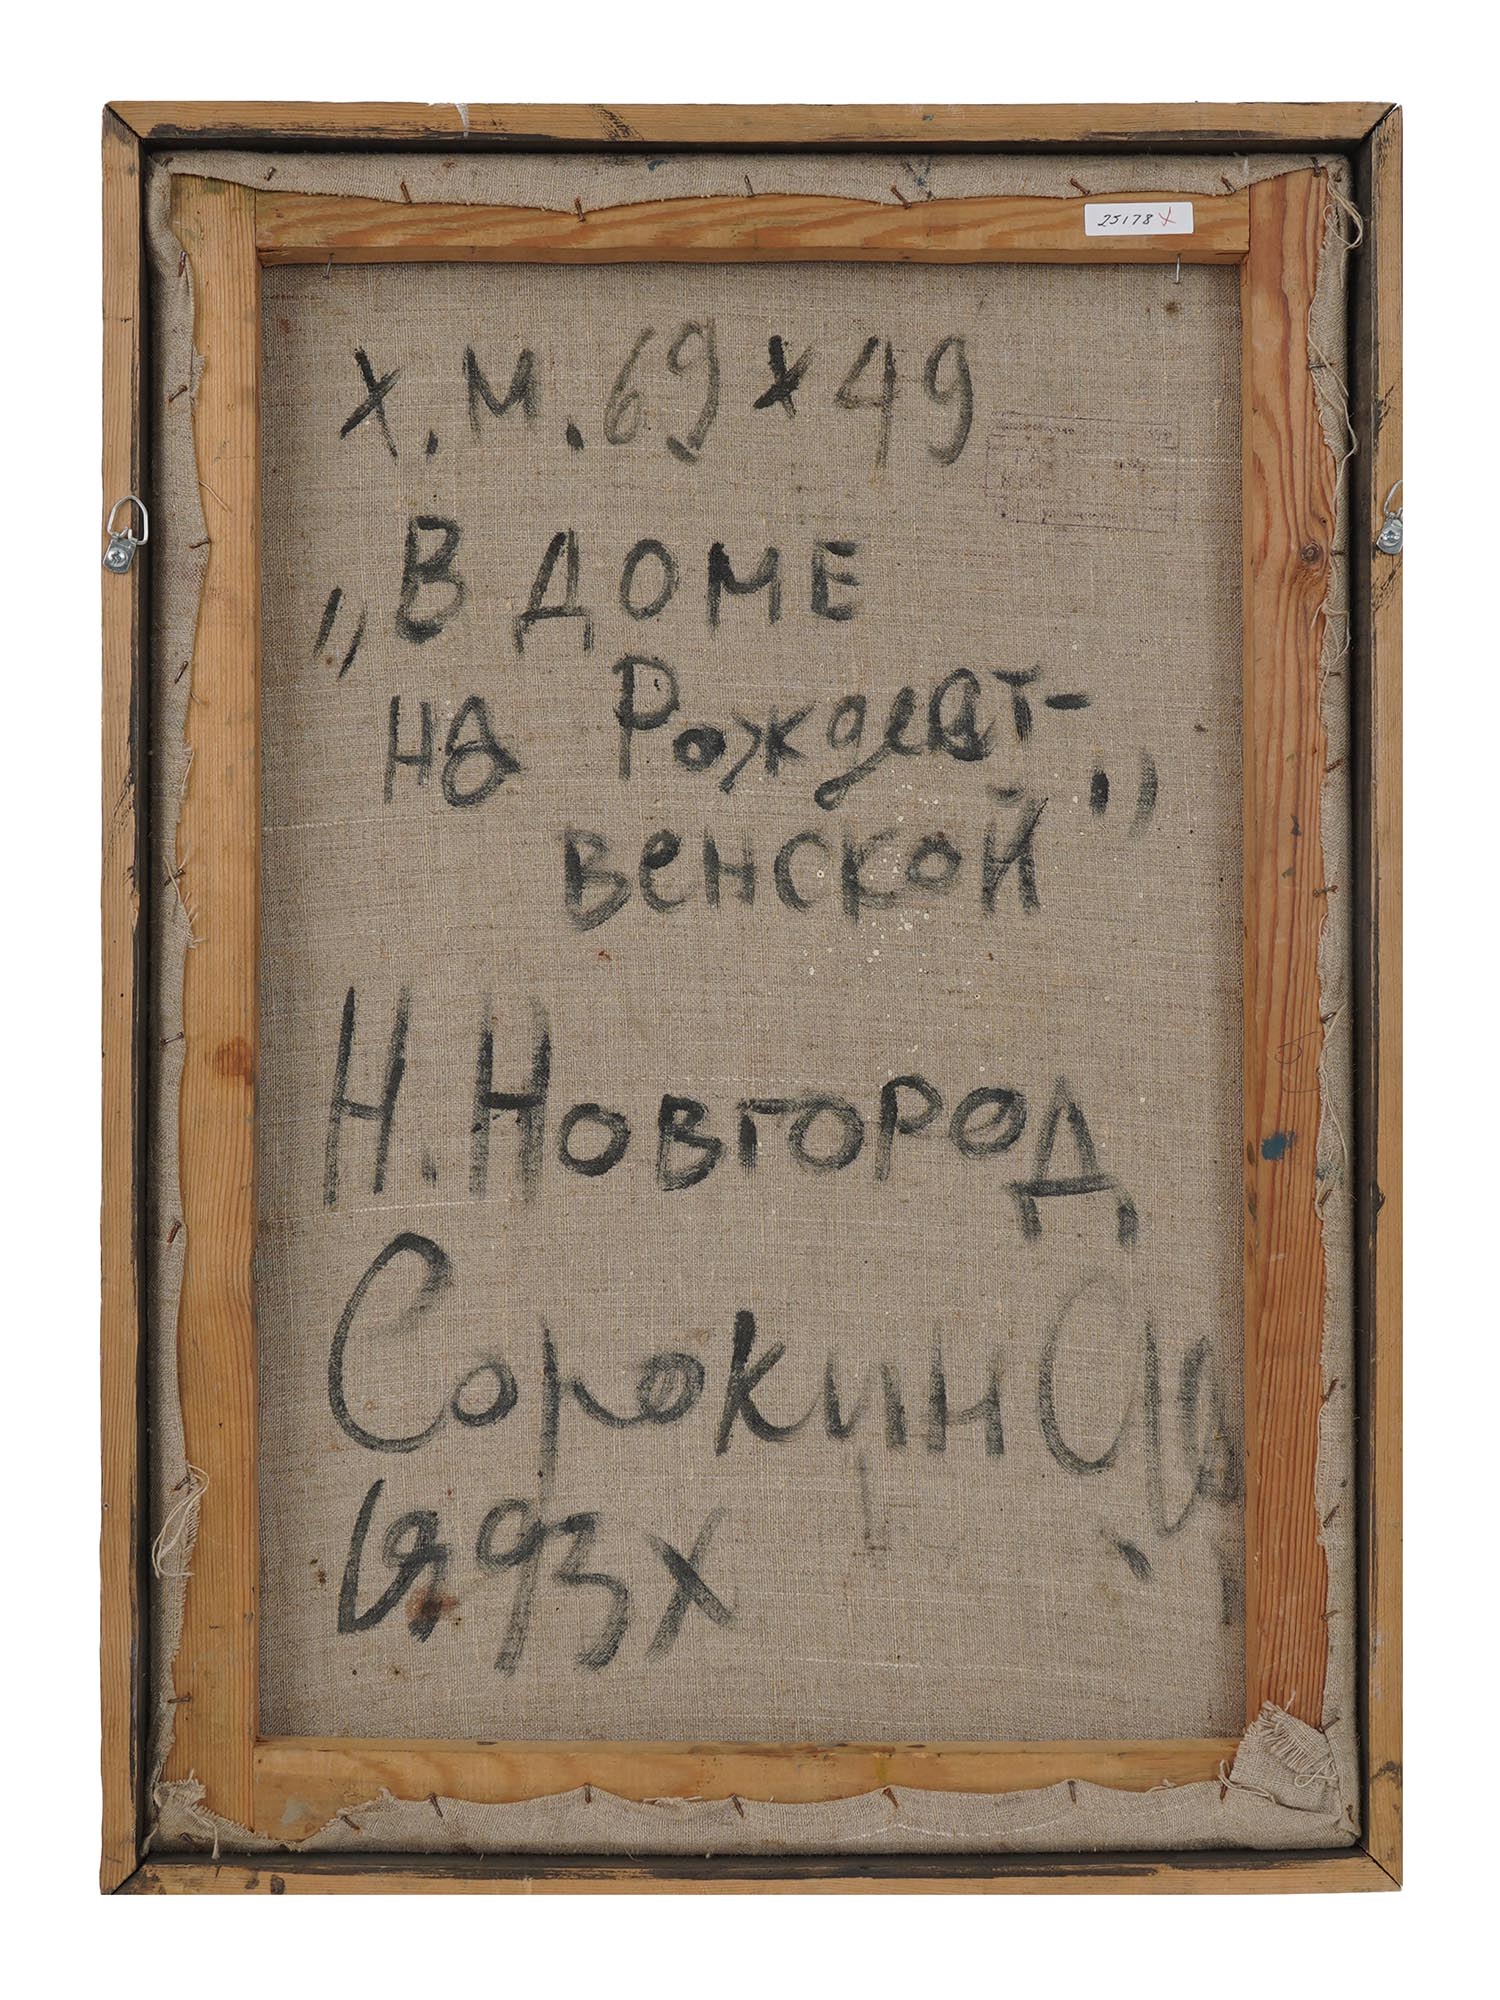 25178 x
х.м. 69 х 49
„В ДОМЕ
на Рождест-
венской"
Н. Новгород
Сорокин
1993